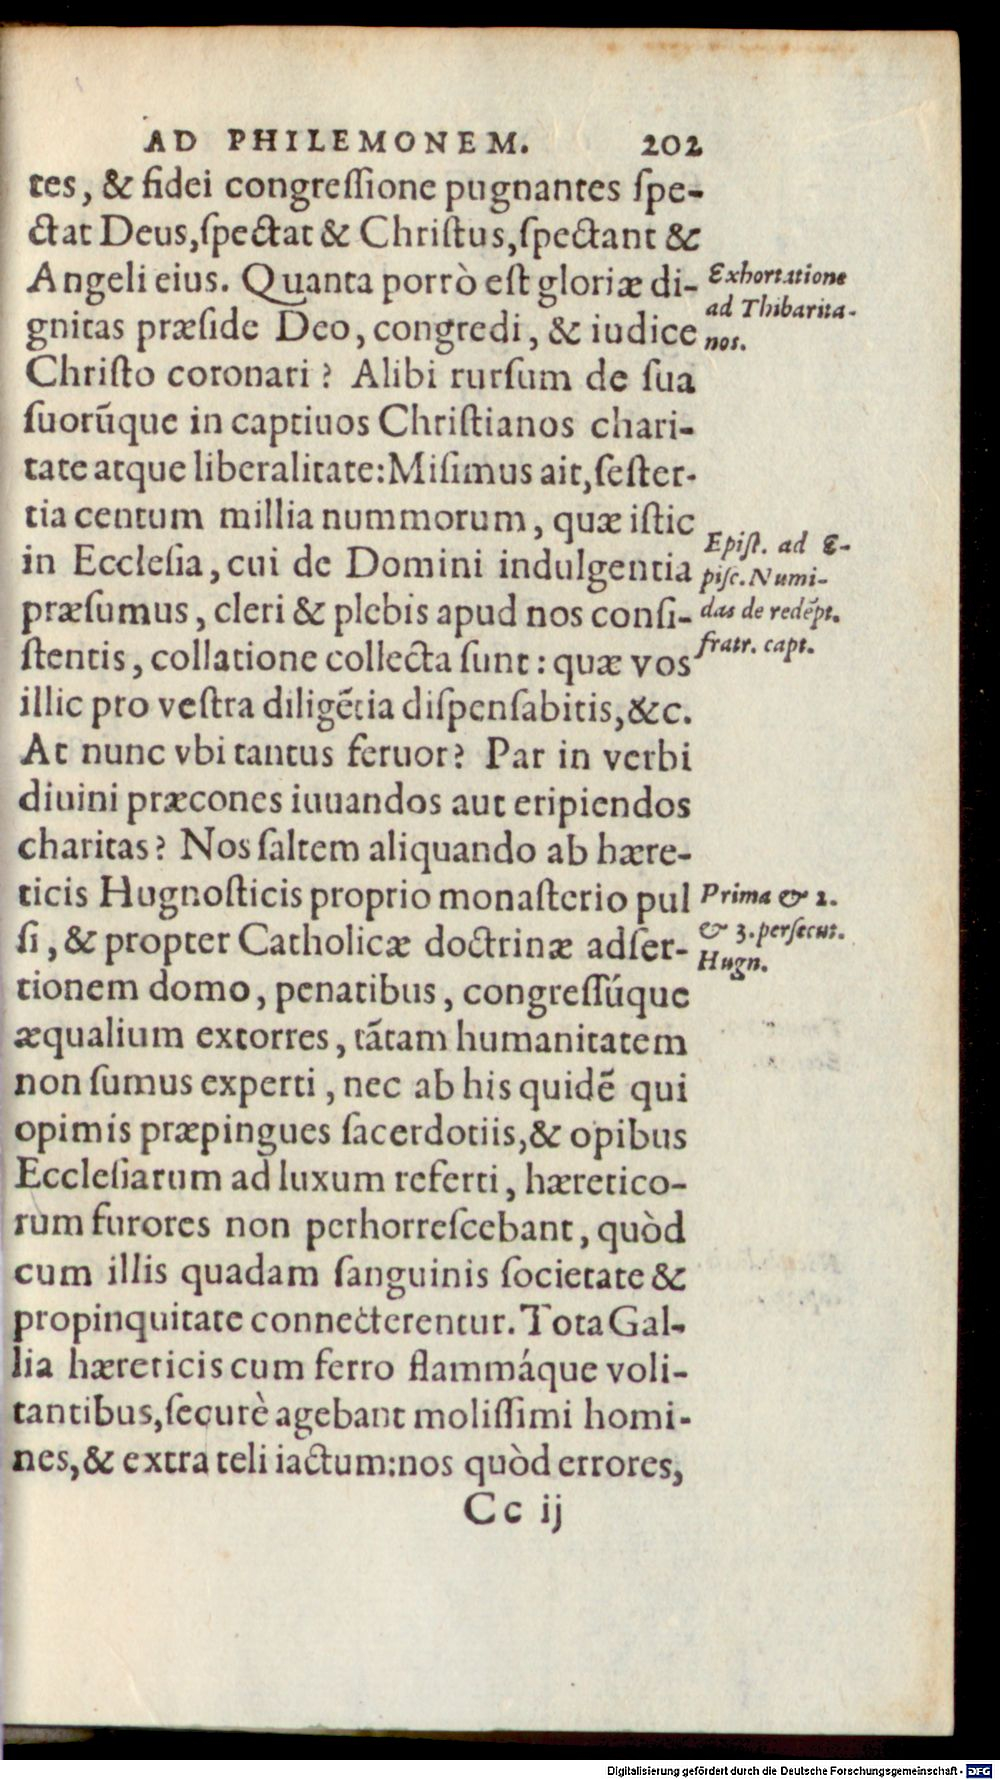 AD PHILEMONEM. 202
tes, & fidei congreſſione pugnantes ſpe-
ctat Deus, ſpectat & Chriſtus, ſpectant &
Angeli eius. Quanta porrò eſt gloriæ di-
gnitas præſide Deo, congredi, & iudice
Chriſto coronari? Alibi rurſum de ſua
ſuorũque in captiuos Chriſtianos chari-
tate atque liberalitate: Miſimus ait, ſeſter-
tia centum millia nummorum, quæ iſtic
in Eccleſia, cui de Domini indulgentia
præſumus, cleri & plebis apud nos conſi-
ſtentis, collatione collecta ſunt: quæ vos
illic pro veſtra diligẽtia diſpenſabitis, &c.
At nunc vbi tantus feruor? Par in verbi
diuini præcones iuuandos aut eripiendos
charitas? Nos ſaltem aliquando ab hære-
ticis Hugnoſticis proprio monaſterio pul
ſi, & propter Catholicæ doctrinæ adſer-
tionem domo, penatibus, congreſſúque
æqualium extorres, tãtam humanitatem
non ſumus experti, nec ab his quidẽ qui
opimis præpingues ſacerdotiis, & opibus
Eccleſiarum ad luxum referti, hæretico-
rum furores non perhorreſcebant, quòd
cum illis quadam ſanguinis ſocietate &
propinquitate connecterentur. Tota Gal-
lia hæreticis cum ferro flammáque voli-
tantibus, ſecurè agebant moliſſimi homi-
nes, & extra teli iactum: nos quòd errores,
Cc ij
Exhortatione
ad Thibarita-
nos.
Epiſt. ad E-
piſc. Numi-
das de redẽpt.
fratr. capt.
Prima & 2.
& 3. perſecut.
Hugn.
Digitalisierung gefördert durch die Deutsche Forschungsgemeinschaft - DFG